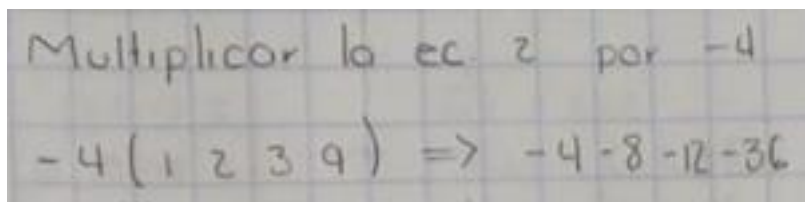 Multiplicar la ec. 2 por -4
-4 ( 1 2 3 9 ) => -4 -8 -12 -36